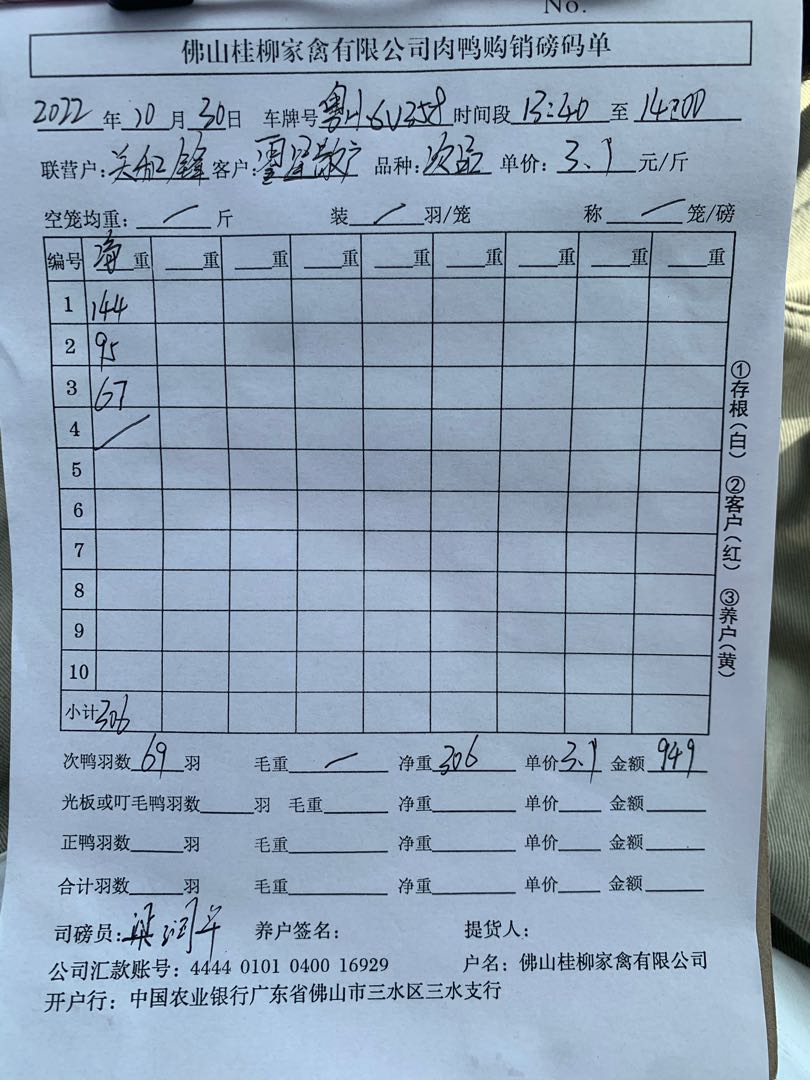 No.
佛山桂柳家禽有限公司肉鸭购销磅码单
2022年10月30日 车牌号 粤 6V358 时间段 13:40 至 14:00
联营户: 关 锋 客户: 散户 品种: 次品 单价: 3.1 元/斤
空笼均重: / 斤 装 / 羽/笼 称 / 笼/磅
编号 净重 重 重 重 重 重 重 重 重
1 144
2 95
3 67
4 /
5
6
7
8
9
10
小计 306
次鸭羽数 69 羽 毛重 / 净重 306 单价 3.1 金额 949
光板或叮毛鸭羽数 羽 毛重 净重 单价 金额
正鸭羽数 羽 毛重 净重 单价 金额
合计羽数 羽 毛重 净重 单价 金额
司磅员: 梁润 养户签名: 提货人:
公司汇款账号: 4444 0101 0400 16929 户名: 佛山桂柳家禽有限公司
开户行: 中国农业银行广东省佛山市三水区三水支行
①存根(白) ②客户(红) ③养户(黄)